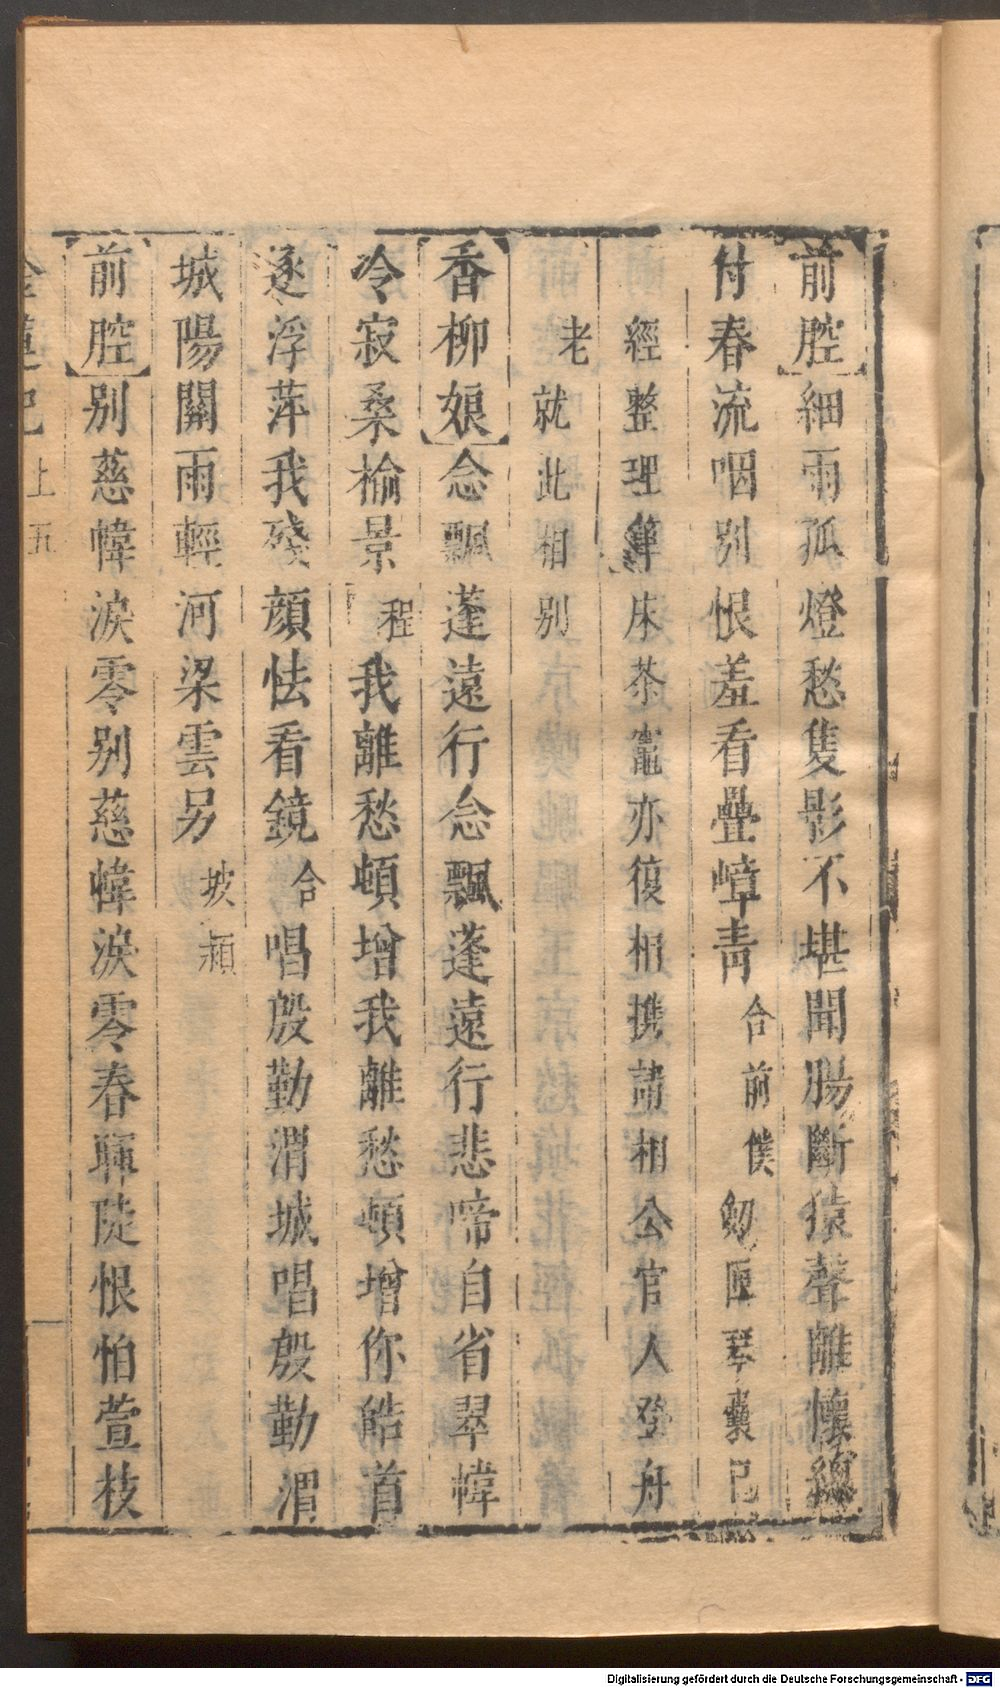 前腔細雨孤燈愁隻影不堪聞腸斷猿聲離懷總
付春流咽別恨羞看疊嶂青合前僕劒匣琴囊已
經整理筆床茶竈亦復相携請相公官人登舟
老就此相別
香柳娘念飄蓬遠行念飄蓬遠行悲啼自省翠幃
冷寂桑榆景程我離愁頓增我離愁頓增你皓首
逐浮萍我殘顔怯看鏡合唱殷勤渭城唱殷勤渭
城陽關雨輕河梁雲另坡頮
前腔別慈幃淚零別慈幃淚零春暉陡恨怕萱枝
金蓮記上五
Digitalisierung gefördert durch die Deutsche Forschungsgemeinschaft - DFG